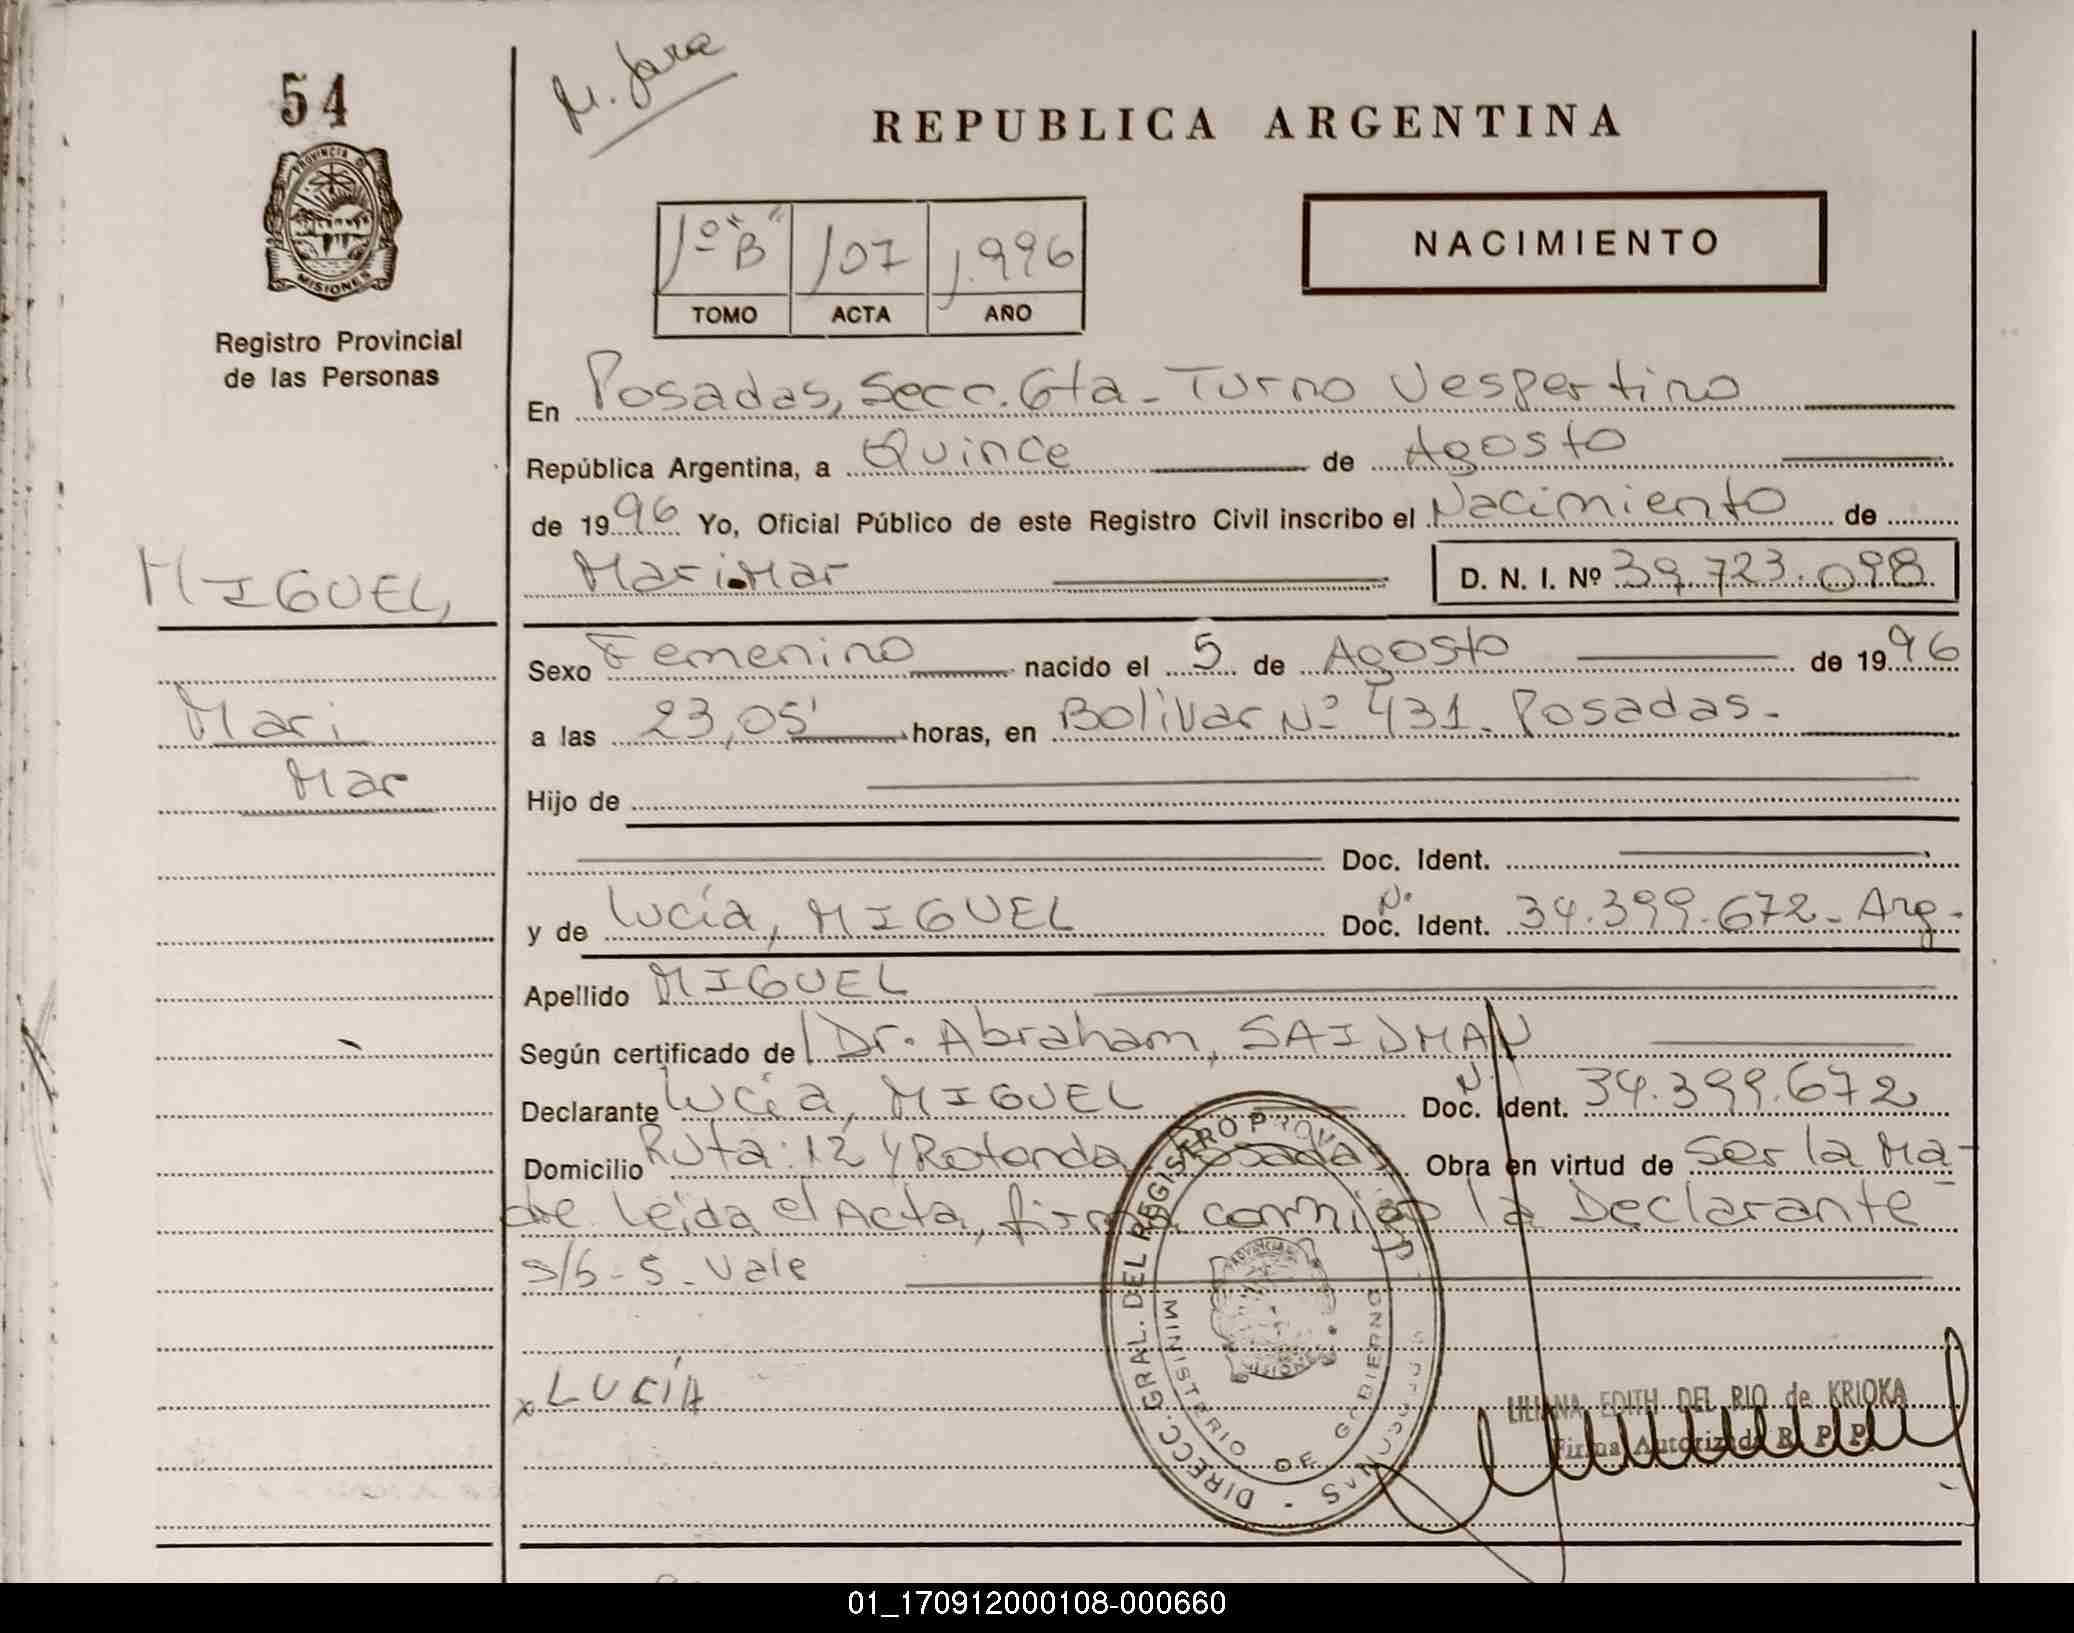 54
M. Jara
REPUBLICA ARGENTINA
PROVINCIA DE MISIONES
Registro Provincial
de las Personas
1º "B" 107 1.996
TOMO ACTA AÑO
NACIMIENTO
En Posadas, Secc. 6ta - Turno Vespertino
República Argentina, a Quince de Agosto
de 1996 Yo, Oficial Público de este Registro Civil inscribo el Nacimiento de
Mari Mar D. N. I. Nº 39.723.098
MIGUEL,
Mari
Mar
Sexo Femenino nacido el 5 de Agosto de 1996
a las 23,05' horas, en Bolivar Nº 431. Posadas.
Hijo de
Doc. Ident.
y de Lucía, MIGUEL Doc. Nº Ident. 34.399.672 - Arg.
Apellido MIGUEL
Según certificado de Dr. Abraham, SAIDMAN
Declarante Lucía, MIGUEL Doc. Nº Ident. 34.399.672
Domicilio Ruta: 12 y Rotonda Posadas Obra en virtud de ser la Ma-
dre. Leida el Acta, firma conmigo la Declarante
s/b - 5 - Vale
x LUCÍA
DIRECC. GRAL. DEL REGISTRO PROV. DE LAS PERSONAS
MINISTERIO DE GOBIERNO
LILIANA EDITH DEL RIO de KRIOKA
Firma Autorizada R. P. P.
01_170912000108-000660